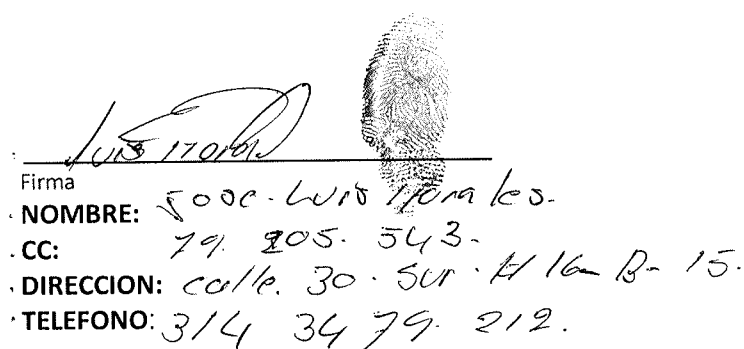 Luis Morales
Firma
NOMBRE: Jose. Luis Morales.
CC: 79. 205. 543.
DIRECCION: calle. 30. Sur. # 16 B- 15.
TELEFONO: 314 34 79. 212.